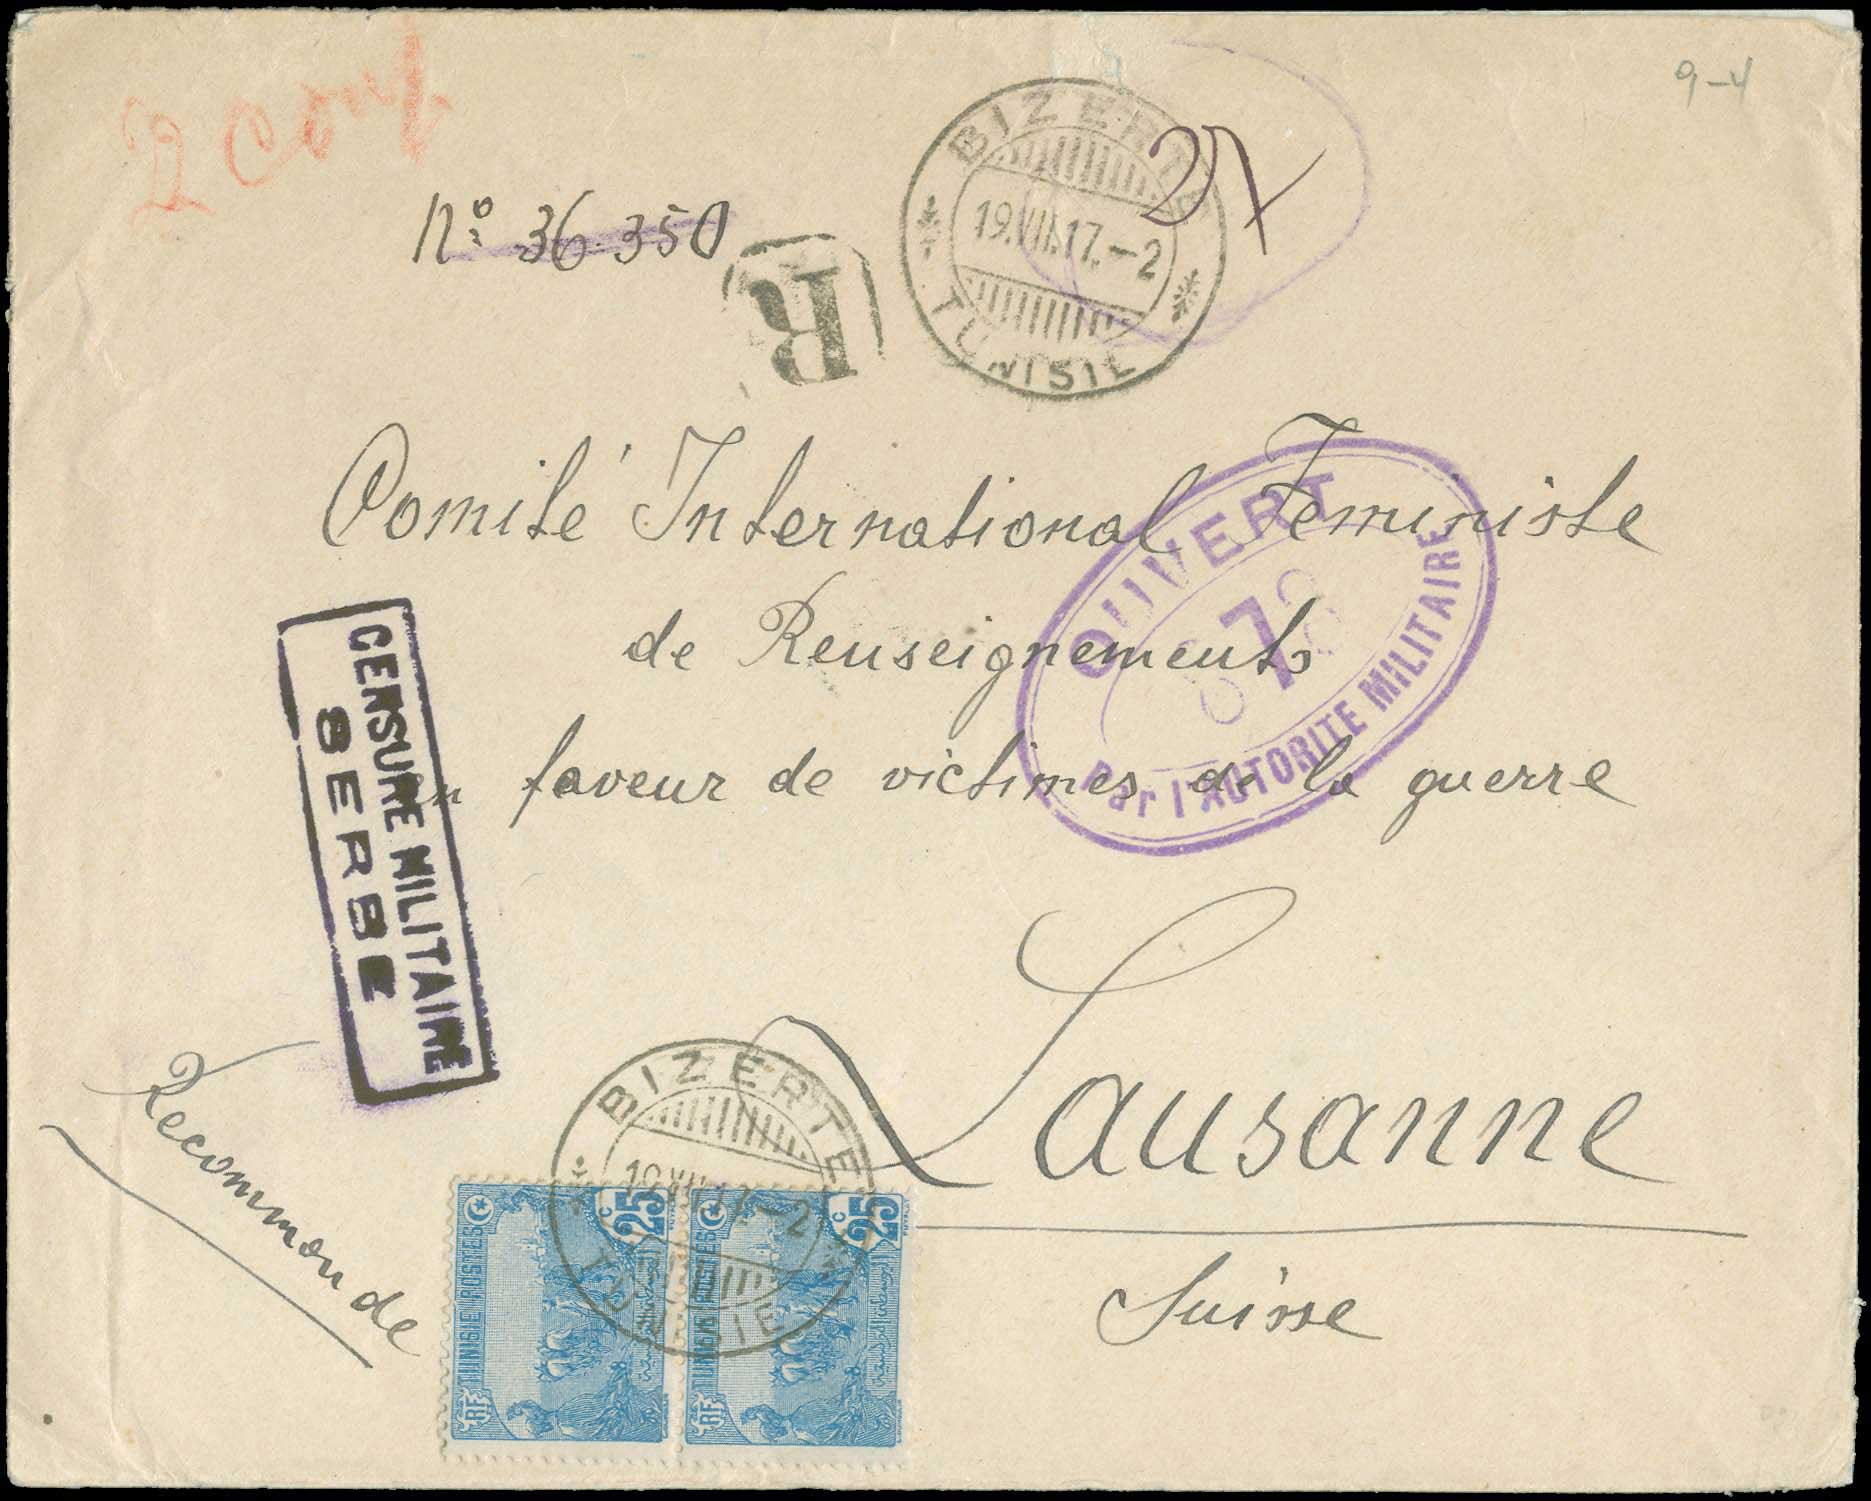 9-4
2 conf
BIZERTE
19.VII.17.-2
TUNISIE
No 36.350
R
Comité International Feministe
de Renseignements
en faveur de victimes de la guerre
Lausanne
Suisse
OUVERT
Par l'AUTORITE MILITAIRE
CENSURE MILITAIRE
SERBE
Recommande
BIZERTE
19.VII.17.-2
TUNISIE
25 c
TUNISIE POSTES
RF
25 c
TUNISIE POSTES
RF